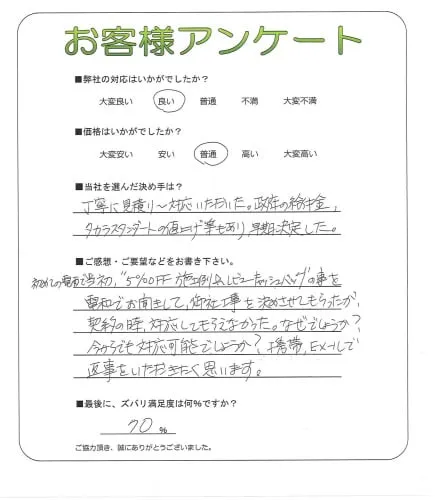 お客様アンケート
■弊社の対応はいかがでしたか？
大変良い 良い 普通 不満 大変不満
■価格はいかがでしたか？
大変安い 安い 普通 高い 大変高い
■当社を選んだ決め手は？
丁寧に見積り～対応いただいた。政府の給付金、
タカラスタンダートの値上げ等もあり、早期決定した。
■ご感想・ご要望などをお書き下さい。
初めての電話で当初、"5%OFF 施工例&レビューキャッシュバック"の事を
電話でお聞きして、御社工事を決めさせてもらったが、
契約の時、対応してもらえなかった。なぜでしょうか？
今からでも対応可能でしょうか？携帯、Eメールで
返事をいただきたく思います。
■最後に、ズバリ満足度は何％ですか？
70 ％
ご協力頂き、誠にありがとうございました。